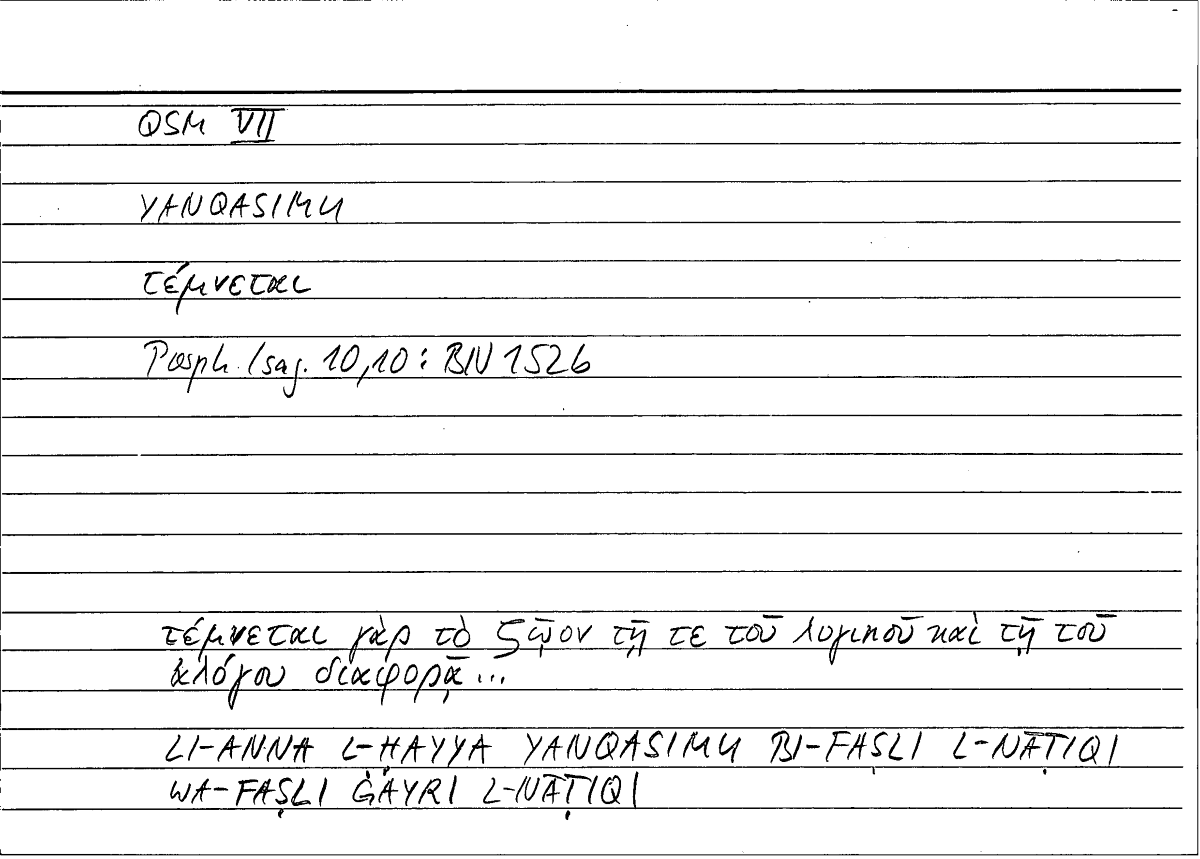 QSM VII
YANQASIMU
τέμνεται
Porph. Isag. 10,10: BN 152b
τέμνεται γὰρ τὸ ζῷον τῇ τε τοῦ λογικοῦ καὶ τῇ τοῦ
ἀλόγου διαφορᾷ...
LI-ANNA L-ḤAYYA YANQASIMU BI-FAṢLI L-NĀṬIQI
WA-FAṢLI ĠAYRI L-NĀṬIQI